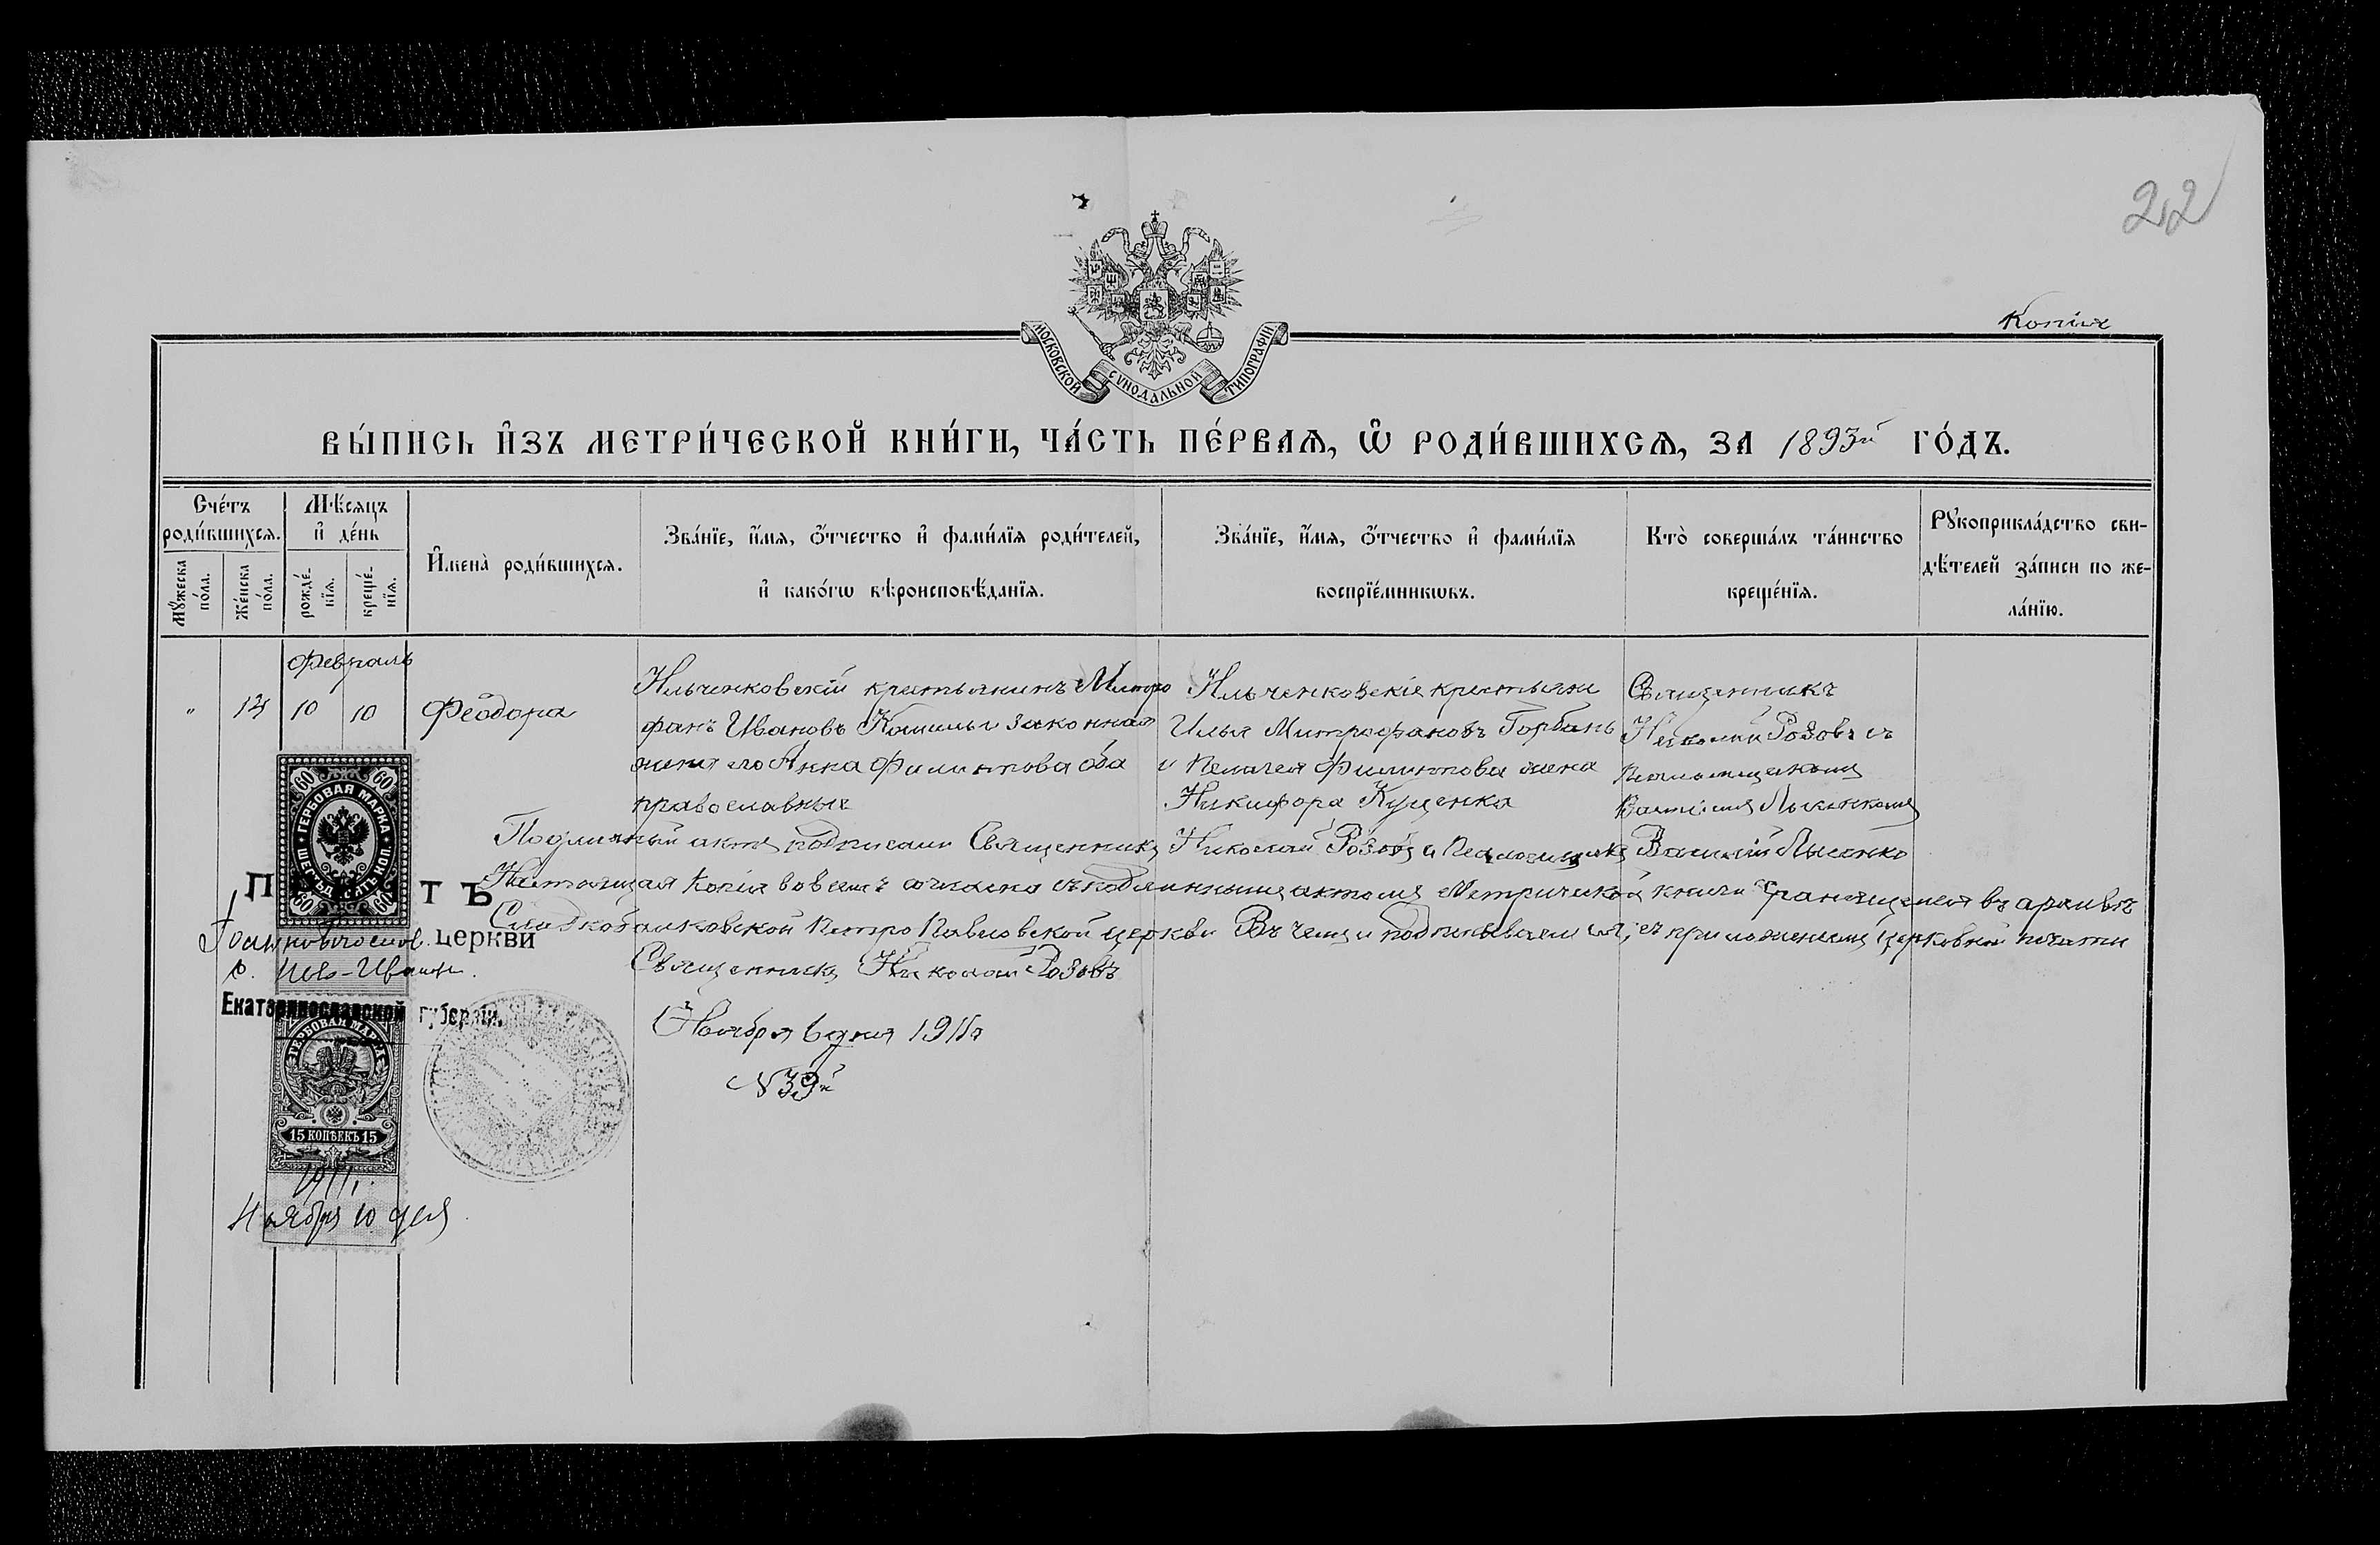 22
Копія
МОСКОВСКОЙ СУНОДАЛЬНОЙ ТИПОГРАФІИ
ВЫ́ПИСЬ И҆ЗЪ МЕТРИ́ЧЕСКОЙ КНИ́ГИ, ЧА́СТЬ ПЕ́РВАѦ, Ѽ РОДИ́ВШИХСѦ, ЗА 1893й ГО́ДЪ.
Сче́тъ роди́вшихсѧ.
Мꙋ́жеска по́ла.
Же́нска по́ла.
Мѣ́сяцъ и҆ де́нь
рожде́нїѧ.
креще́нїѧ.
И҆мена̀ роди́вшихсѧ.
Зва́нїе, и҆́мѧ, ѻ҆́тчество и҆ фами́лїѧ роди́телей,
и҆ како́гѡ вѣроисповѣ́данїѧ.
Зва́нїе, и҆́мѧ, ѻ҆́тчество и҆ фами́лїѧ
воспрїе́мникѡвъ.
Кто̀ соверша́лъ та́инство
креще́нїѧ.
Рꙋкоприкла́дство сви-
дѣ́телей за́писи по же-
ла́нїю.
Февраль
" 14 10 10 Феодора
Ильченковскій крестьянинъ Митро
фанъ Ивановъ и законная
жена его Анна Филиппова оба
православные
Ильченковскіе крестьяне
Илья Митрофановъ Горбань
и Пелагея Филиппова жена
Никифора Куценка
Священникъ
Николай Розовъ съ
псаломщикомъ
Василіемъ Лысенкомъ
Подлинный актъ подписали Священникъ Николай Розовъ и Псаломщикъ Василій Лысенко
Настоящая Копія во всемъ согласна съ подлиннымъ актомъ Метрической книги хранящемся въ архивѣ
Сладкобалковской Петро Павловской церкви Въ чемъ и подписываемся, съ приложеніемъ церковной печати
Священникъ Николай Розовъ
Ноября 6 дня 1911г
N 39й
60 60
ГЕРБОВАЯ МАРКА
ШЕСТЬДЕСЯТЪ КОП.
60 60
П Т Ъ
церкви
с. Ново-Иван
Екатеринославской губерніи.
ГЕРБОВАЯ МАРКА
15 КОПѢЕКЪ 15
1911г.
Ноября 10 дня